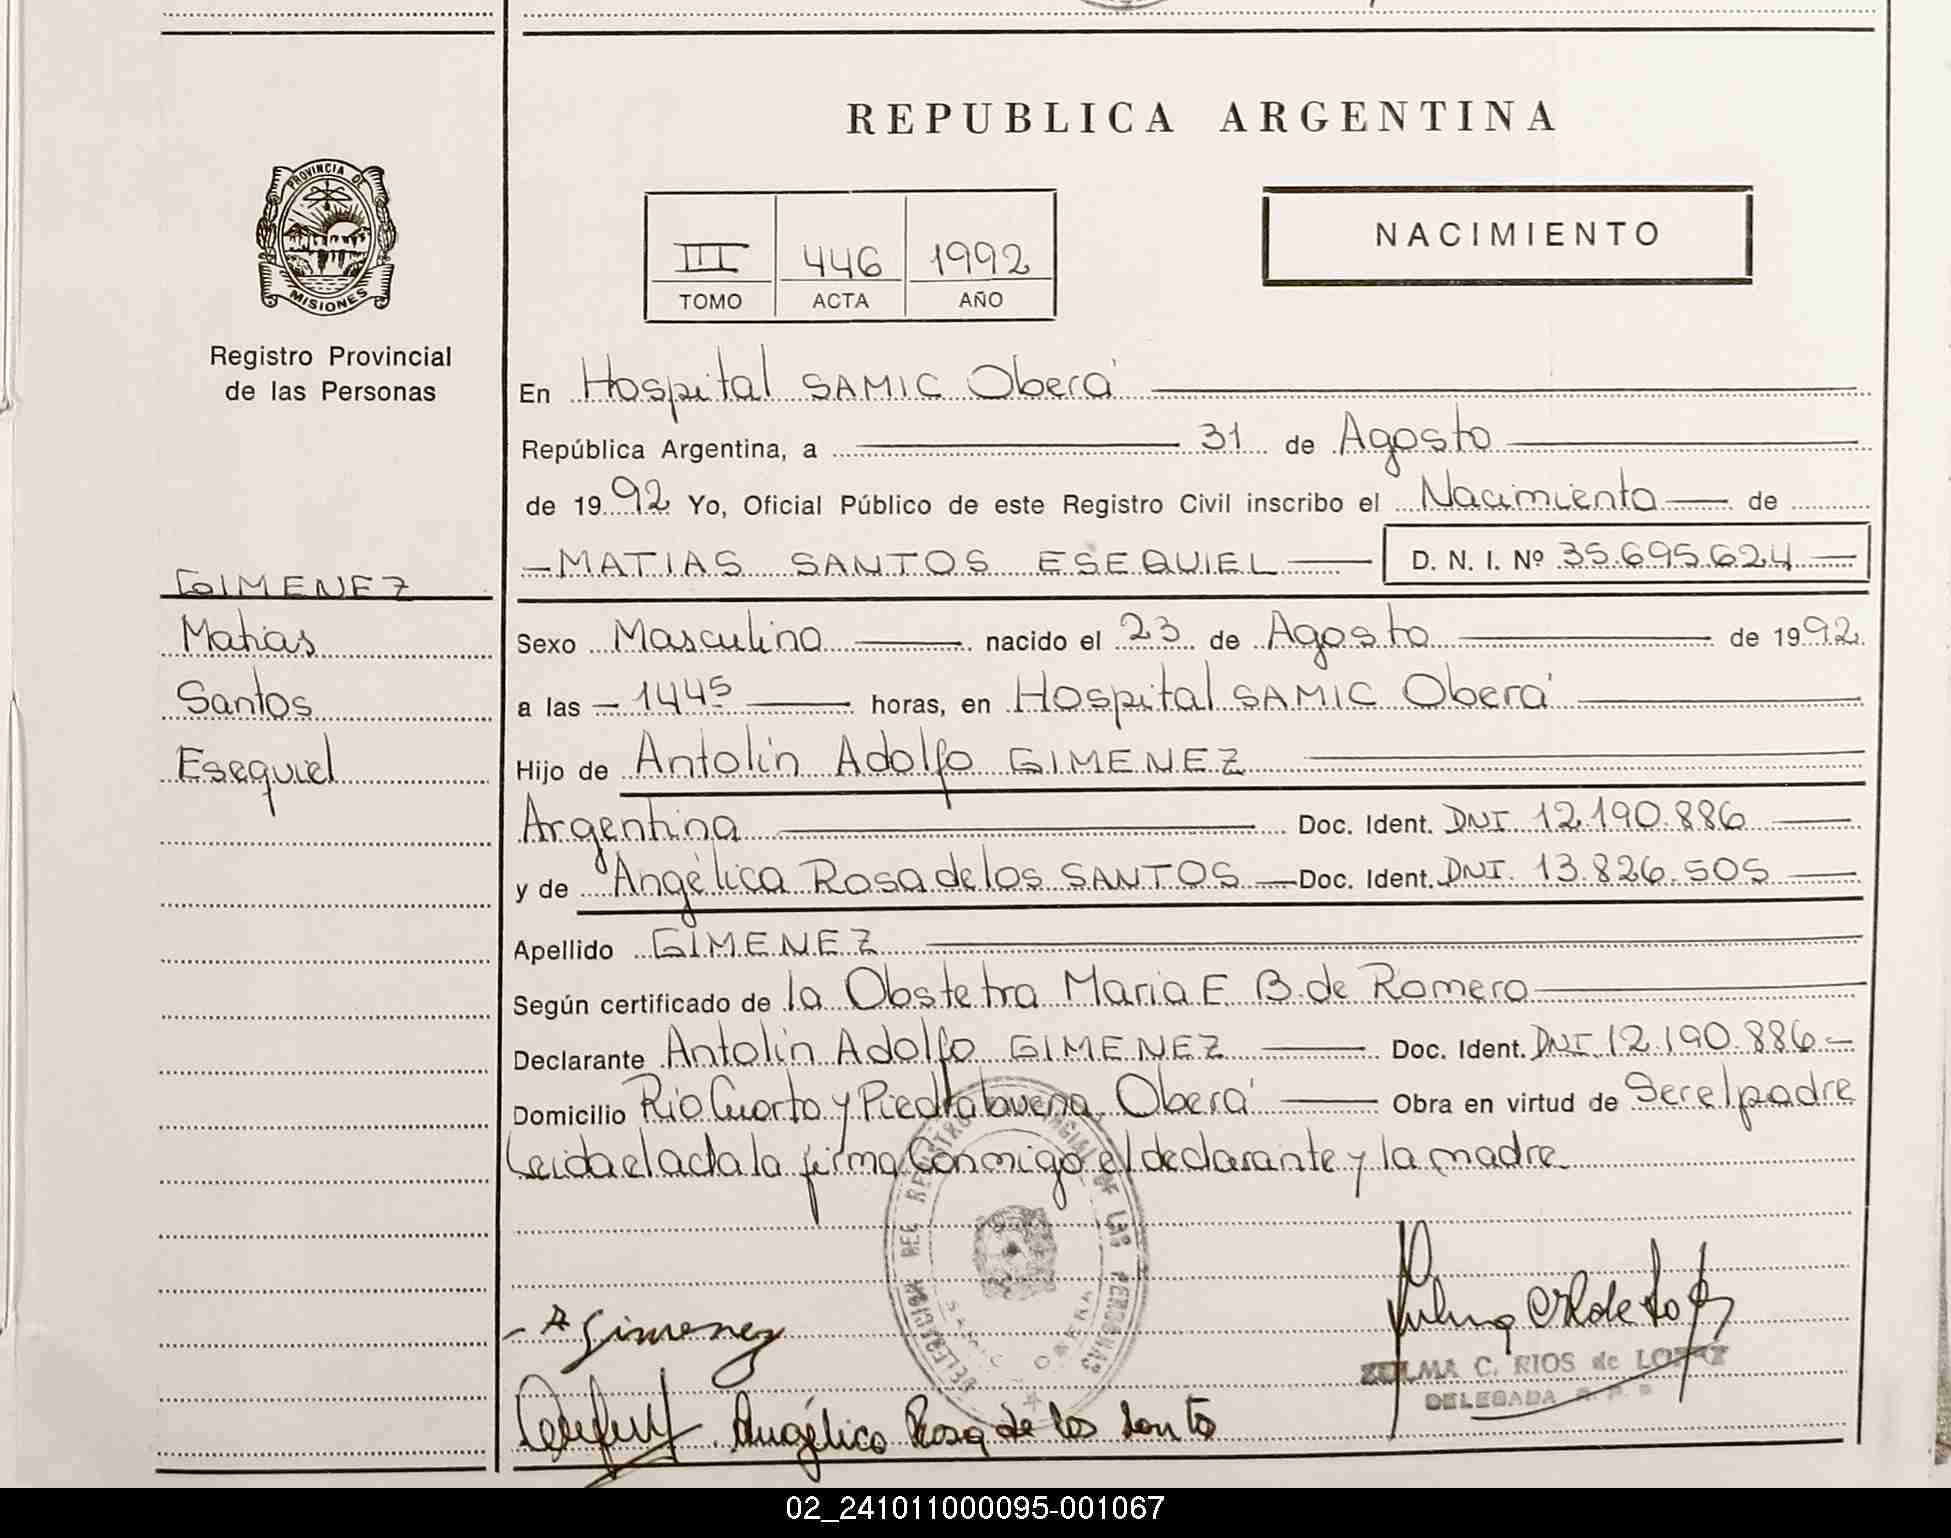 REPUBLICA ARGENTINA
PROVINCIA DE
MISIONES
Registro Provincial
de las Personas
III 446 1992
TOMO ACTA AÑO
NACIMIENTO
GIMENEZ
Matias
Santos
Esequiel
En Hospital SAMIC Oberá
República Argentina, a 31 de Agosto
de 1992 Yo, Oficial Público de este Registro Civil inscribo el Nacimiento de
MATIAS SANTOS ESEQUIEL D. N. I. Nº 35.695.624
Sexo Masculino nacido el 23 de Agosto de 1992
a las 1445 horas, en Hospital SAMIC Oberá
Hijo de Antolín Adolfo GIMENEZ
Argentina Doc. Ident. DNI 12.190.886
y de Angélica Rosa de los SANTOS Doc. Ident. DNI. 13.826.505
Apellido GIMENEZ
Según certificado de la Obstetra Maria E B. de Romero
Declarante Antolín Adolfo GIMENEZ Doc. Ident. DNI 12.190.886
Domicilio Río Cuarto y Piedrabuena, Oberá Obra en virtud de Ser el padre
Leida el acta la firma Conmigo el declarante y la madre
DELEGACION DEL REGISTRO PROVINCIAL DE LAS PERSONAS
SAMIC OBERA
A Gimenez
Angélica Rosa de los Santo
ZULMA C. RIOS de LOPEZ
DELEGADA R. P. P.
02_241011000095-001067